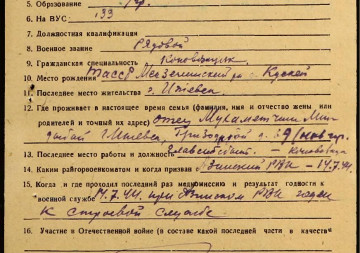 5. Образование
6. На ВУС 133
7. Должностная квалификация
8. Военное звание Рядовой
9. Гражданская специальность Коновозчик
10. Место рождения ТАССР Мензелинский р-н
11. Последнее место жительства г. Ижевск
12. Где проживает в настоящее время семья (фамилия, имя и отчество жены или
родителей и точный их адрес) отец Мухаметчин
г. Ижевск,
13. Последнее место работы и должность
14. Каким райгорвоенкоматом и когда призван РВК — 14.7.44
15. Когда и где проходил последний раз медкомиссию и результат годности к
военной службе 14.7.44 при РВК годен
к строевой службе
16. Участие в Отечественной войне (в составе какой последней части и в качестве